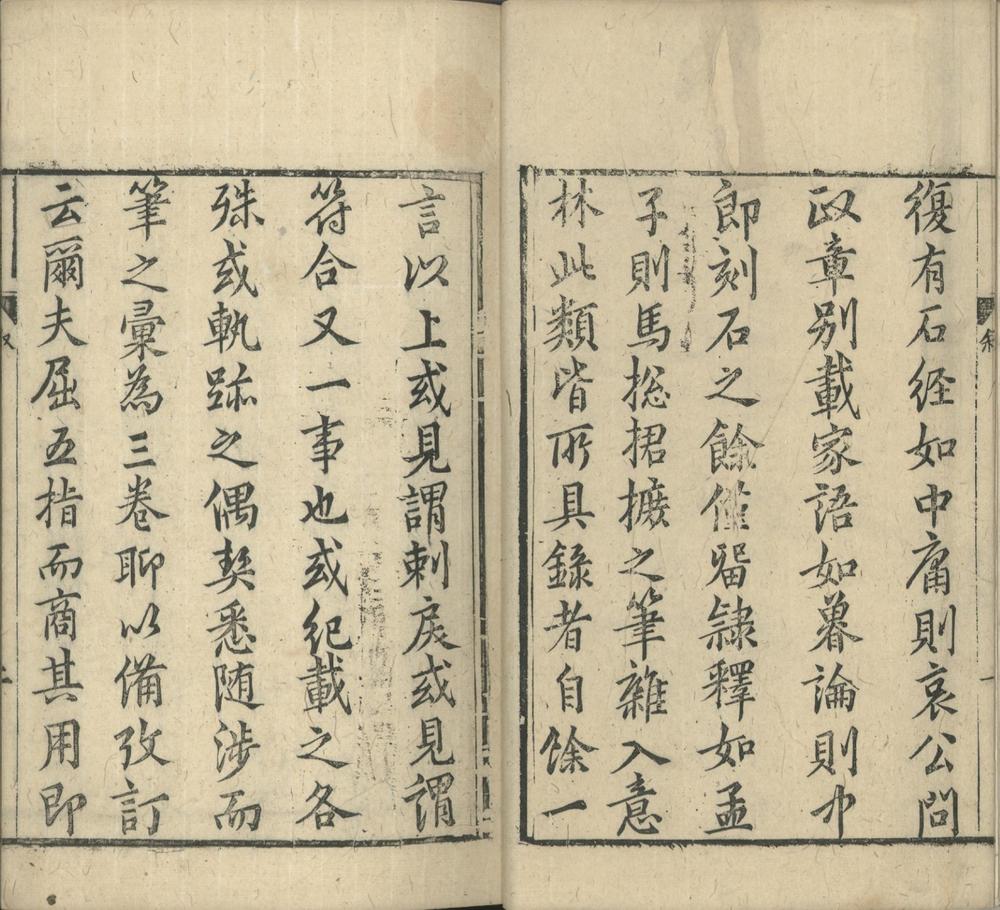 復有石経如中庸則哀公問
政章別載家語如魯論則中
郎刻石之餘僅畱隷釋如孟
子則馬捴捃摭之筆雜入意
林此類皆所具錄者自餘一
言以上或見謂剌戾或見謂
符合又一事也或紀載之各
殊或軌跡之偶契悉随涉而
筆之彙為三卷聊以備攷訂
云爾夫屈五指而商其用即